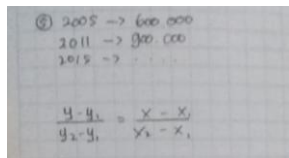 ⑧ 2005 -> 600.000
2011 -> 900.000
2015 -> . . . . .
y - y₁ / y₂ - y₁ = x - x₁ / x₂ - x₁